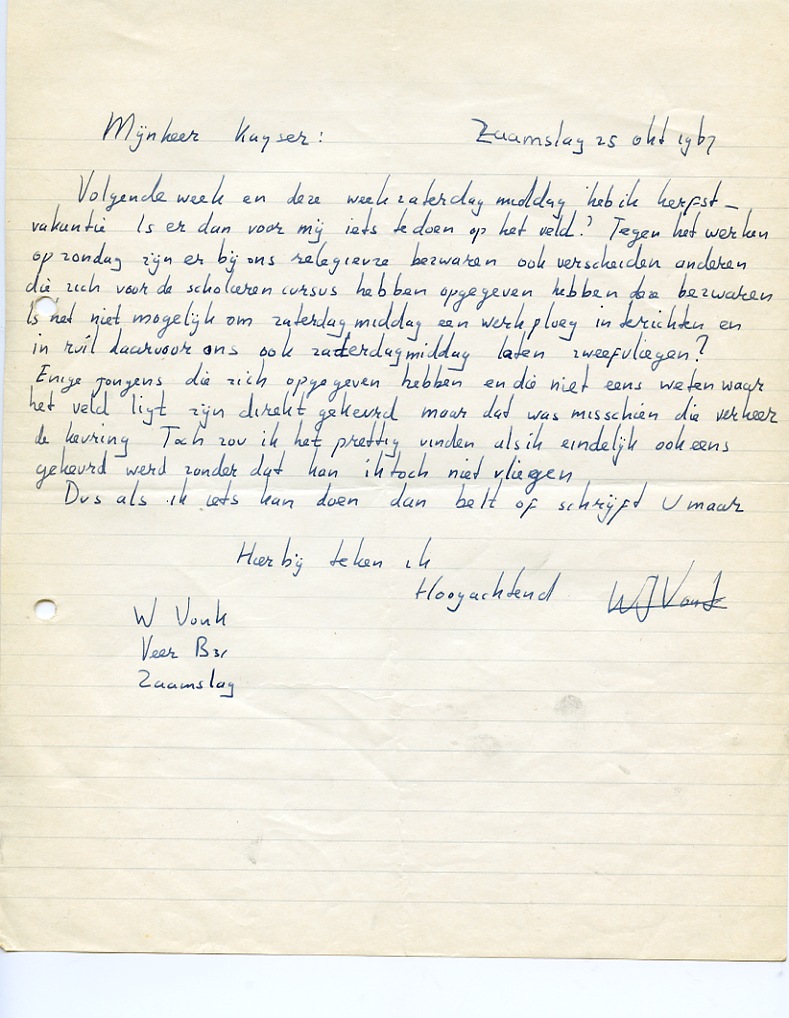 Mijnheer Kayser: Zaamslag 25 okt 1967
Volgende week en deze week zaterdag middag heb ik herfst_
vakantie Is er dan voor mij iets te doen op het veld? Tegen het werken
op zondag zijn er bij ons relegieuze bezwaren ook verscheiden anderen
die zich voor de scholieren cursus hebben opgegeven hebben deze bezwaren
Is het niet mogelijk om zaterdagmiddag een werkploeg in te richten en
in ruil daarvoor ons ook zaterdagmiddag laten zweefvliegen?
Enige jongens die zich opgegeven hebben en die niet eens weten waar
het veld ligt zijn direkt gekeurd maar dat was misschien die verkeer
de keuring Toch zou ik het prettig vinden als ik eindelijk ook eens
gekeurd werd zonder dat kan ik toch niet vliegen
Dus als ik iets kan doen dan belt of schrijft U maar
Hierbij teken ik
Hoogachtend WJVonk
W Vonk
Veer B31
Zaamslag